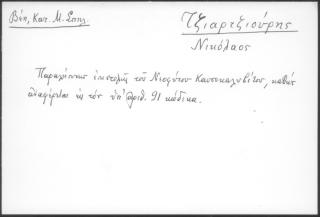 Βέη, Κατ. Μ. Σπηλ.
Τζιαρτζιούρης
Νικόλαος
Παραλήπτης ἐπιστολῆς τοῦ Νεοφύτου Καυσοκαλυβίτου, καθὼς
ἀναφέρεται εἰς τὸν ὑπ' ἀριθ. 91 κώδικα.